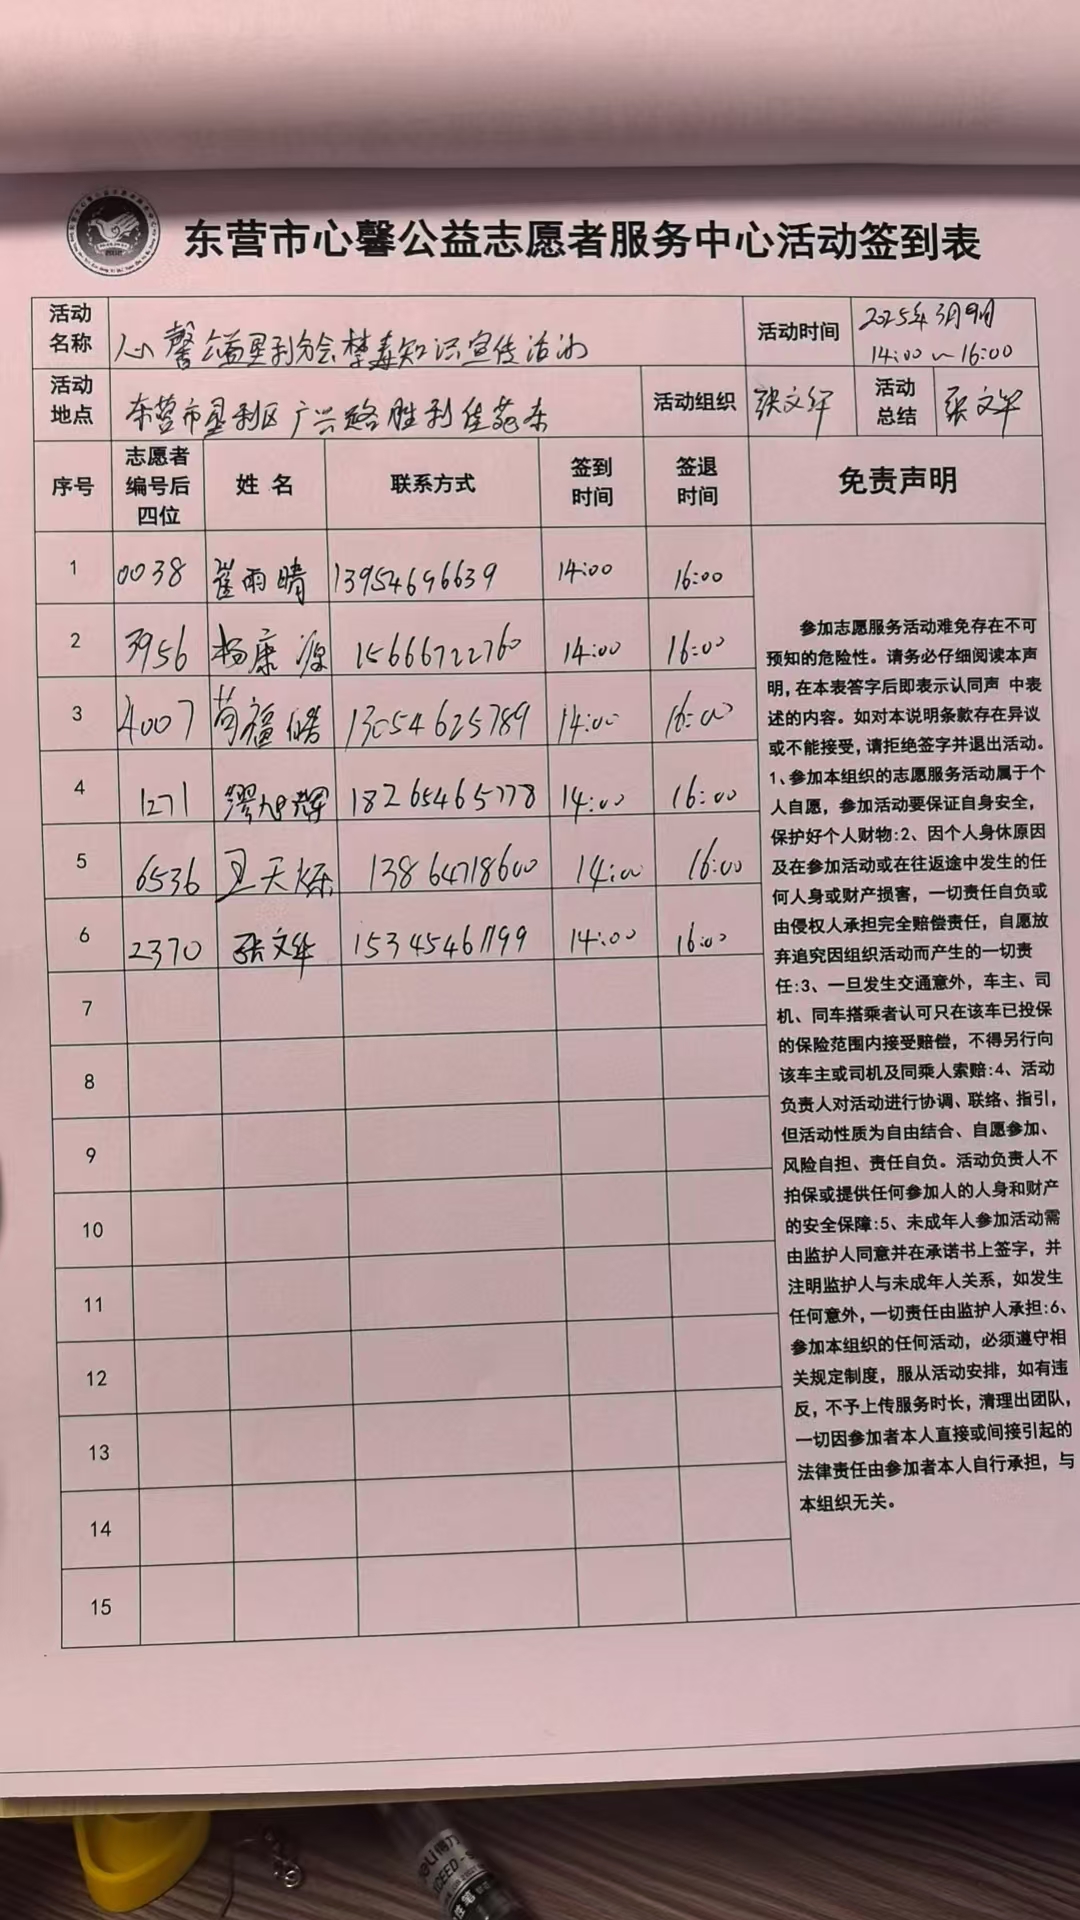 东营市心馨公益志愿者服务中心活动签到表
活动名称 心馨公益垦利分会禁毒知识宣传活动 活动时间 2025年3月9日 14:00~16:00
活动地点 东营市垦利区广兴路胜利佳苑东 活动组织 张文华 活动总结 张文华
序号 志愿者编号后四位 姓名 联系方式 签到时间 签退时间 免责声明
1 0038 崔雨晴 13954696639 14:00 16:00
2 3956 杨康源 15666722760 14:00 16:00
3 4007 苟福皓 13054625789 14:00 16:00
4 1271 缪旭辉 18265465778 14:00 16:00
5 6536 王天烁 13864718600 14:00 16:00
6 2370 张文华 15345461199 14:00 16:00
7
8
9
10
11
12
13
14
15
参加志愿服务活动难免存在不可
预知的危险性。请务必仔细阅读本声
明,在本表答字后即表示认同声 中表
述的内容。如对本说明条款存在异议
或不能接受,请拒绝签字并退出活动。
1、参加本组织的志愿服务活动属于个
人自愿，参加活动要保证自身安全，
保护好个人财物:2、因个人身休原因
及在参加活动或在往返途中发生的任
何人身或财产损害，一切责任自负或
由侵权人承担完全赔偿责任，自愿放
弃追究因组织活动而产生的一切责
任:3、一旦发生交通意外，车主、司
机、同车搭乘者认可只在该车已投保
的保险范围内接受赔偿，不得另行向
该车主或司机及同乘人索赔:4、活动
负责人对活动进行协调、联络、指引，
但活动性质为自由结合、自愿参加、
风险自担、责任自负。活动负责人不
拍保或提供任何参加人的人身和财产
的安全保障:5、未成年人参加活动需
由监护人同意并在承诺书上签字，并
注明监护人与未成年人关系，如发生
任何意外,一切责任由监护人承担:6、
参加本组织的任何活动，必须遵守相
关规定制度，服从活动安排，如有违
反，不予上传服务时长，清理出团队，
一切因参加者本人直接或间接引起的
法律责任由参加者本人自行承担，与
本组织无关。
deli得力